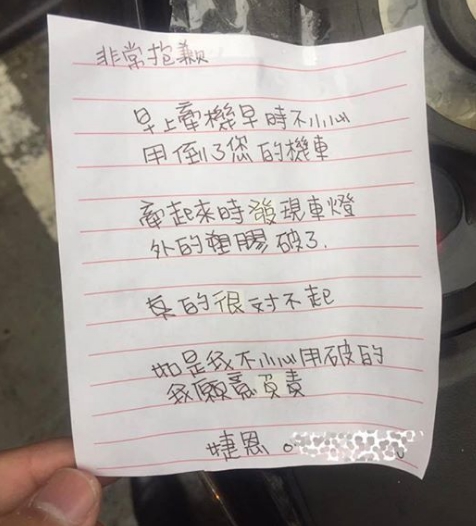 非常抱歉
早上牽機早時不小心
用倒了您的機車
牽起來時發現車燈
外的塑膠破了.
真的很对不起
如是我不小心用破的
我願意負責
婕恩 0